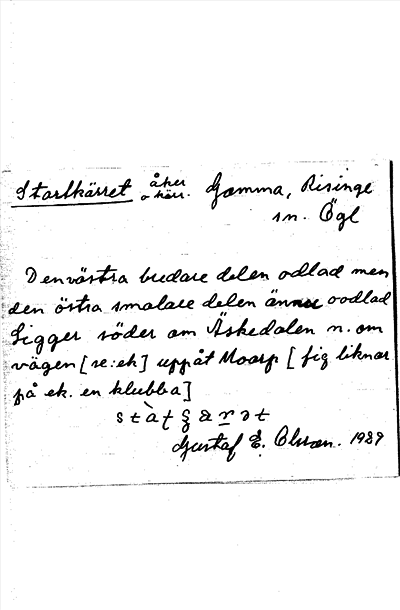 Starrkärret åker o kärr. Gamma, Risinge
sn. Ögl
Den västra bredare delen odlad men
den östra smalare delen ännu oodlad
Ligger söder om Äskedalen n. om
vägen [se: ek] uppåt Moarp [fig liknar
på ek. en klubba]
Gustaf E. Olsson. 1989